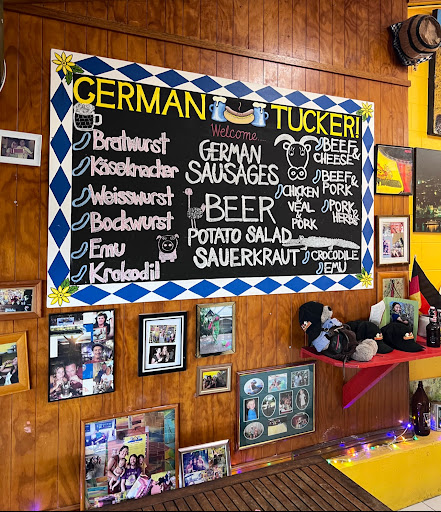 GERMAN TUCKER!
Welcome
Bratwurst
Käsekracker
Weisswurst
Bockwurst
Emu
Krokodil
GERMAN
SAUSAGES
BEER
POTATO SALAD
SAUERKRAUT
BEEF &
CHEESE
BEEF &
PORK
CHICKEN
VEAL
&
PORK
PORK
&
HERBS
CROCODILE
EMU